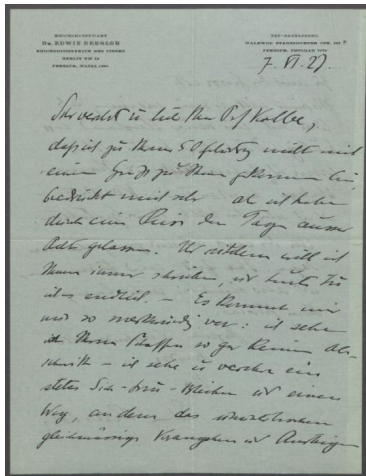 REICHSKUNSTWART
DR. EDWIN REDSLOB
REICHSMINISTERIUM DES INNERN
BERLIN NW 40
7. VI. 27.
Sehr verehrter u. lieber Herr Prof Kolbe,
dass ich zu Ihrem 50 Geburtstag nicht mit
einem Gruss zu Ihnen gekommen bin,
bedrückt mich sehr
durch eine Reise den Tag ausser
Acht gelassen. Und seitdem will ich
Ihnen immer schreiben, und heute tu
ich es endlich. – Es kommt mir
auch so merkwürdig vor: ich sehe
in Ihrem Schaffen so gar keinen Ab-
schnitt – ich sehe u verehre ein
stetes Sich-treu-Bleiben und einen
Weg, an dem das
gleichmässige Vorangehen und